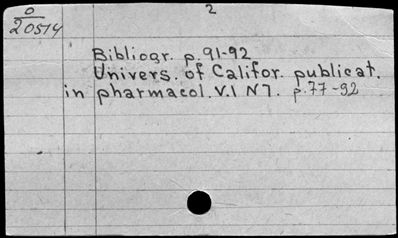 0
20514
2
Bibliogr. p. 91-92
Univers. of Califor. publicat.
in pharmacol. V.1 N7. p. 77-92